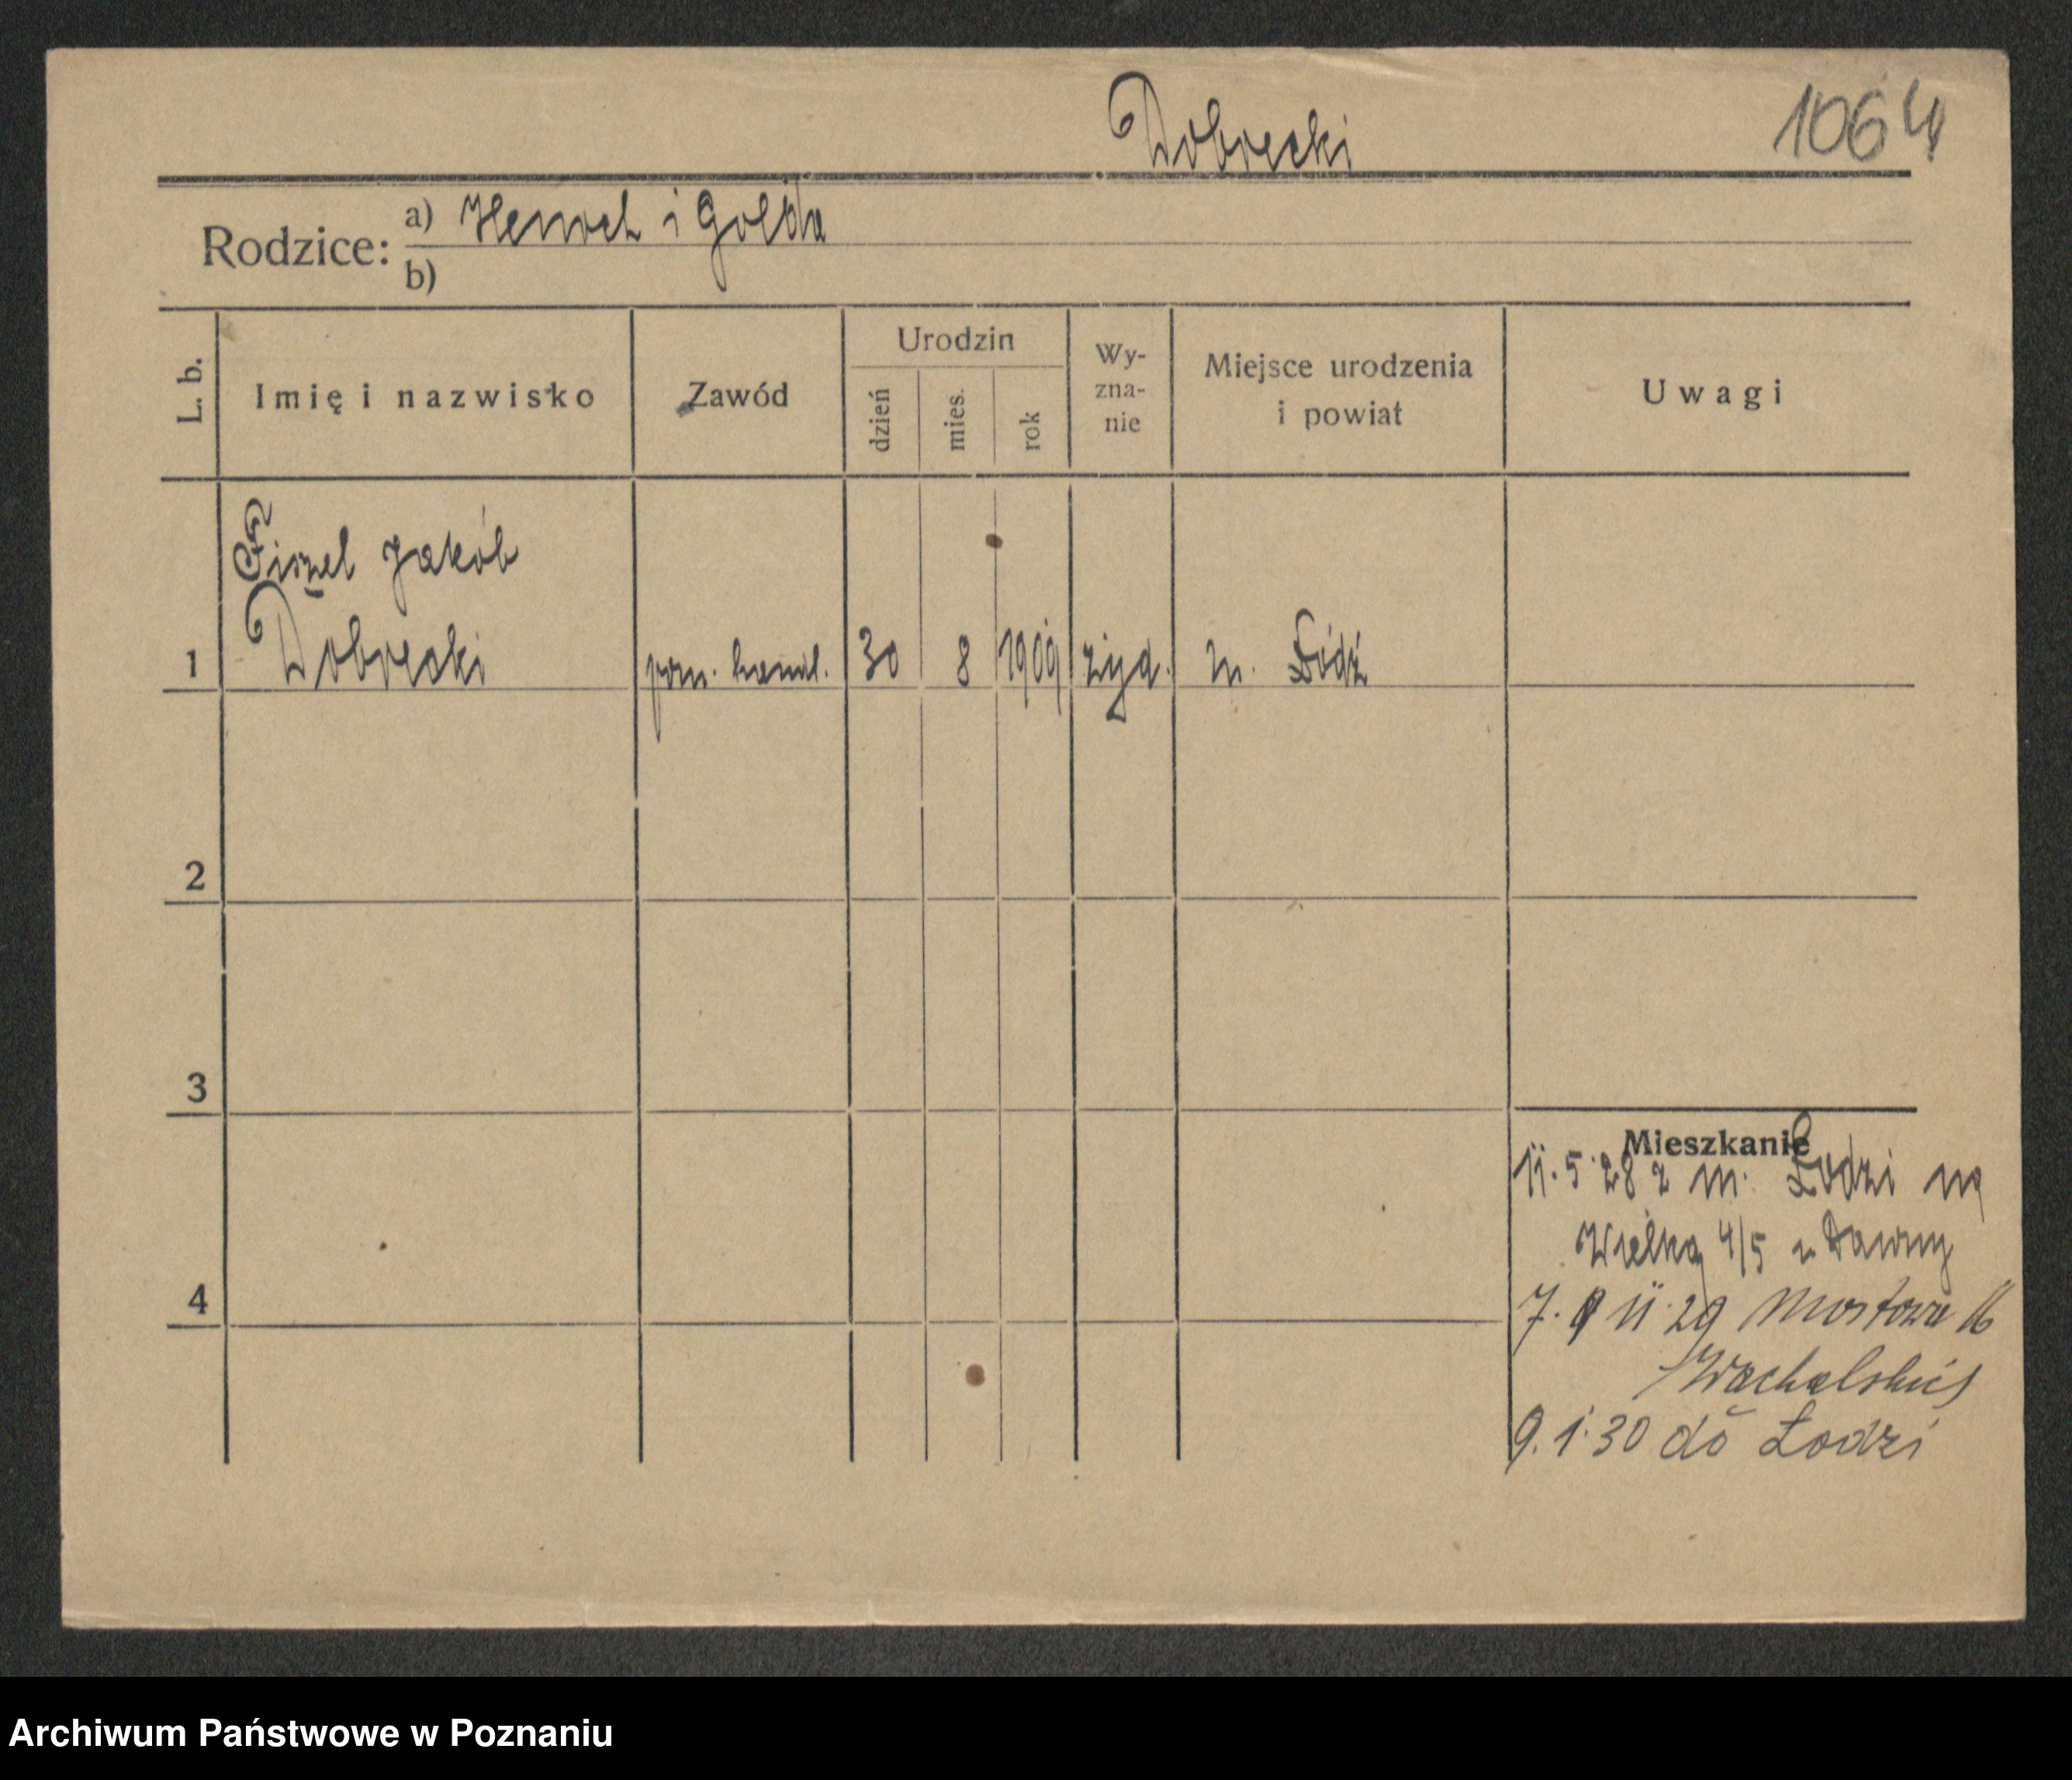 Dobrecki
1064
Rodzice:
a) Henoch i Golda
b)
L. b.
Imię i nazwisko
Zawód
Urodzin
dzień
mies.
rok
Wy-
zna-
nie
Miejsce urodzenia
i powiat
Uwagi
Fiszel Jakób
1 Dobrecki pom. handl. 30 8 1909 żyd. m. Łódź
2
3
4
Mieszkanie
11.5.28 z m. Łodzi na
Wielką 4/5 u
7. 11.29 Mostowa 16
9.1.30 do Łodzi
Archiwum Państwowe w Poznaniu